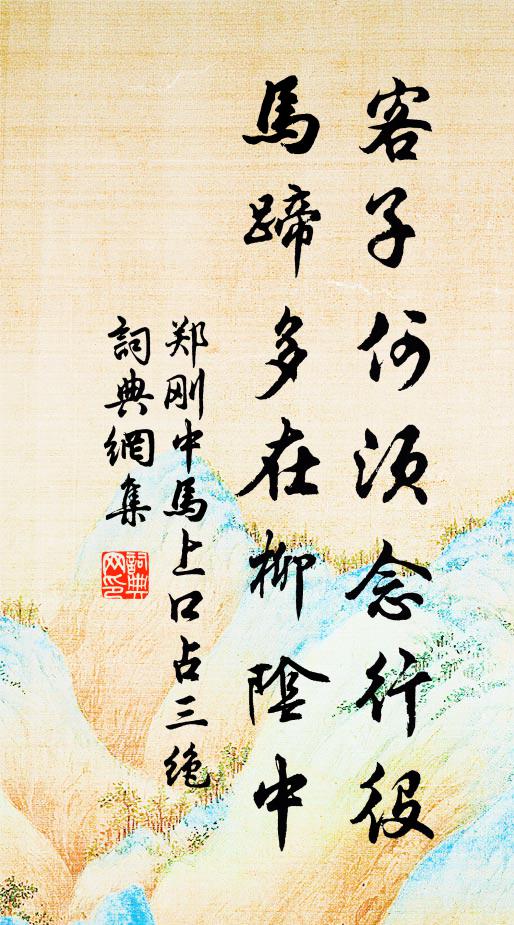 客子何須念行役
馬蹄多在柳陰中
郑刚中馬上口占三绝
詞典網集
詞典網印